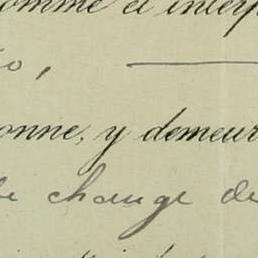 omme et interp
o,
onne, y demeur
e change de